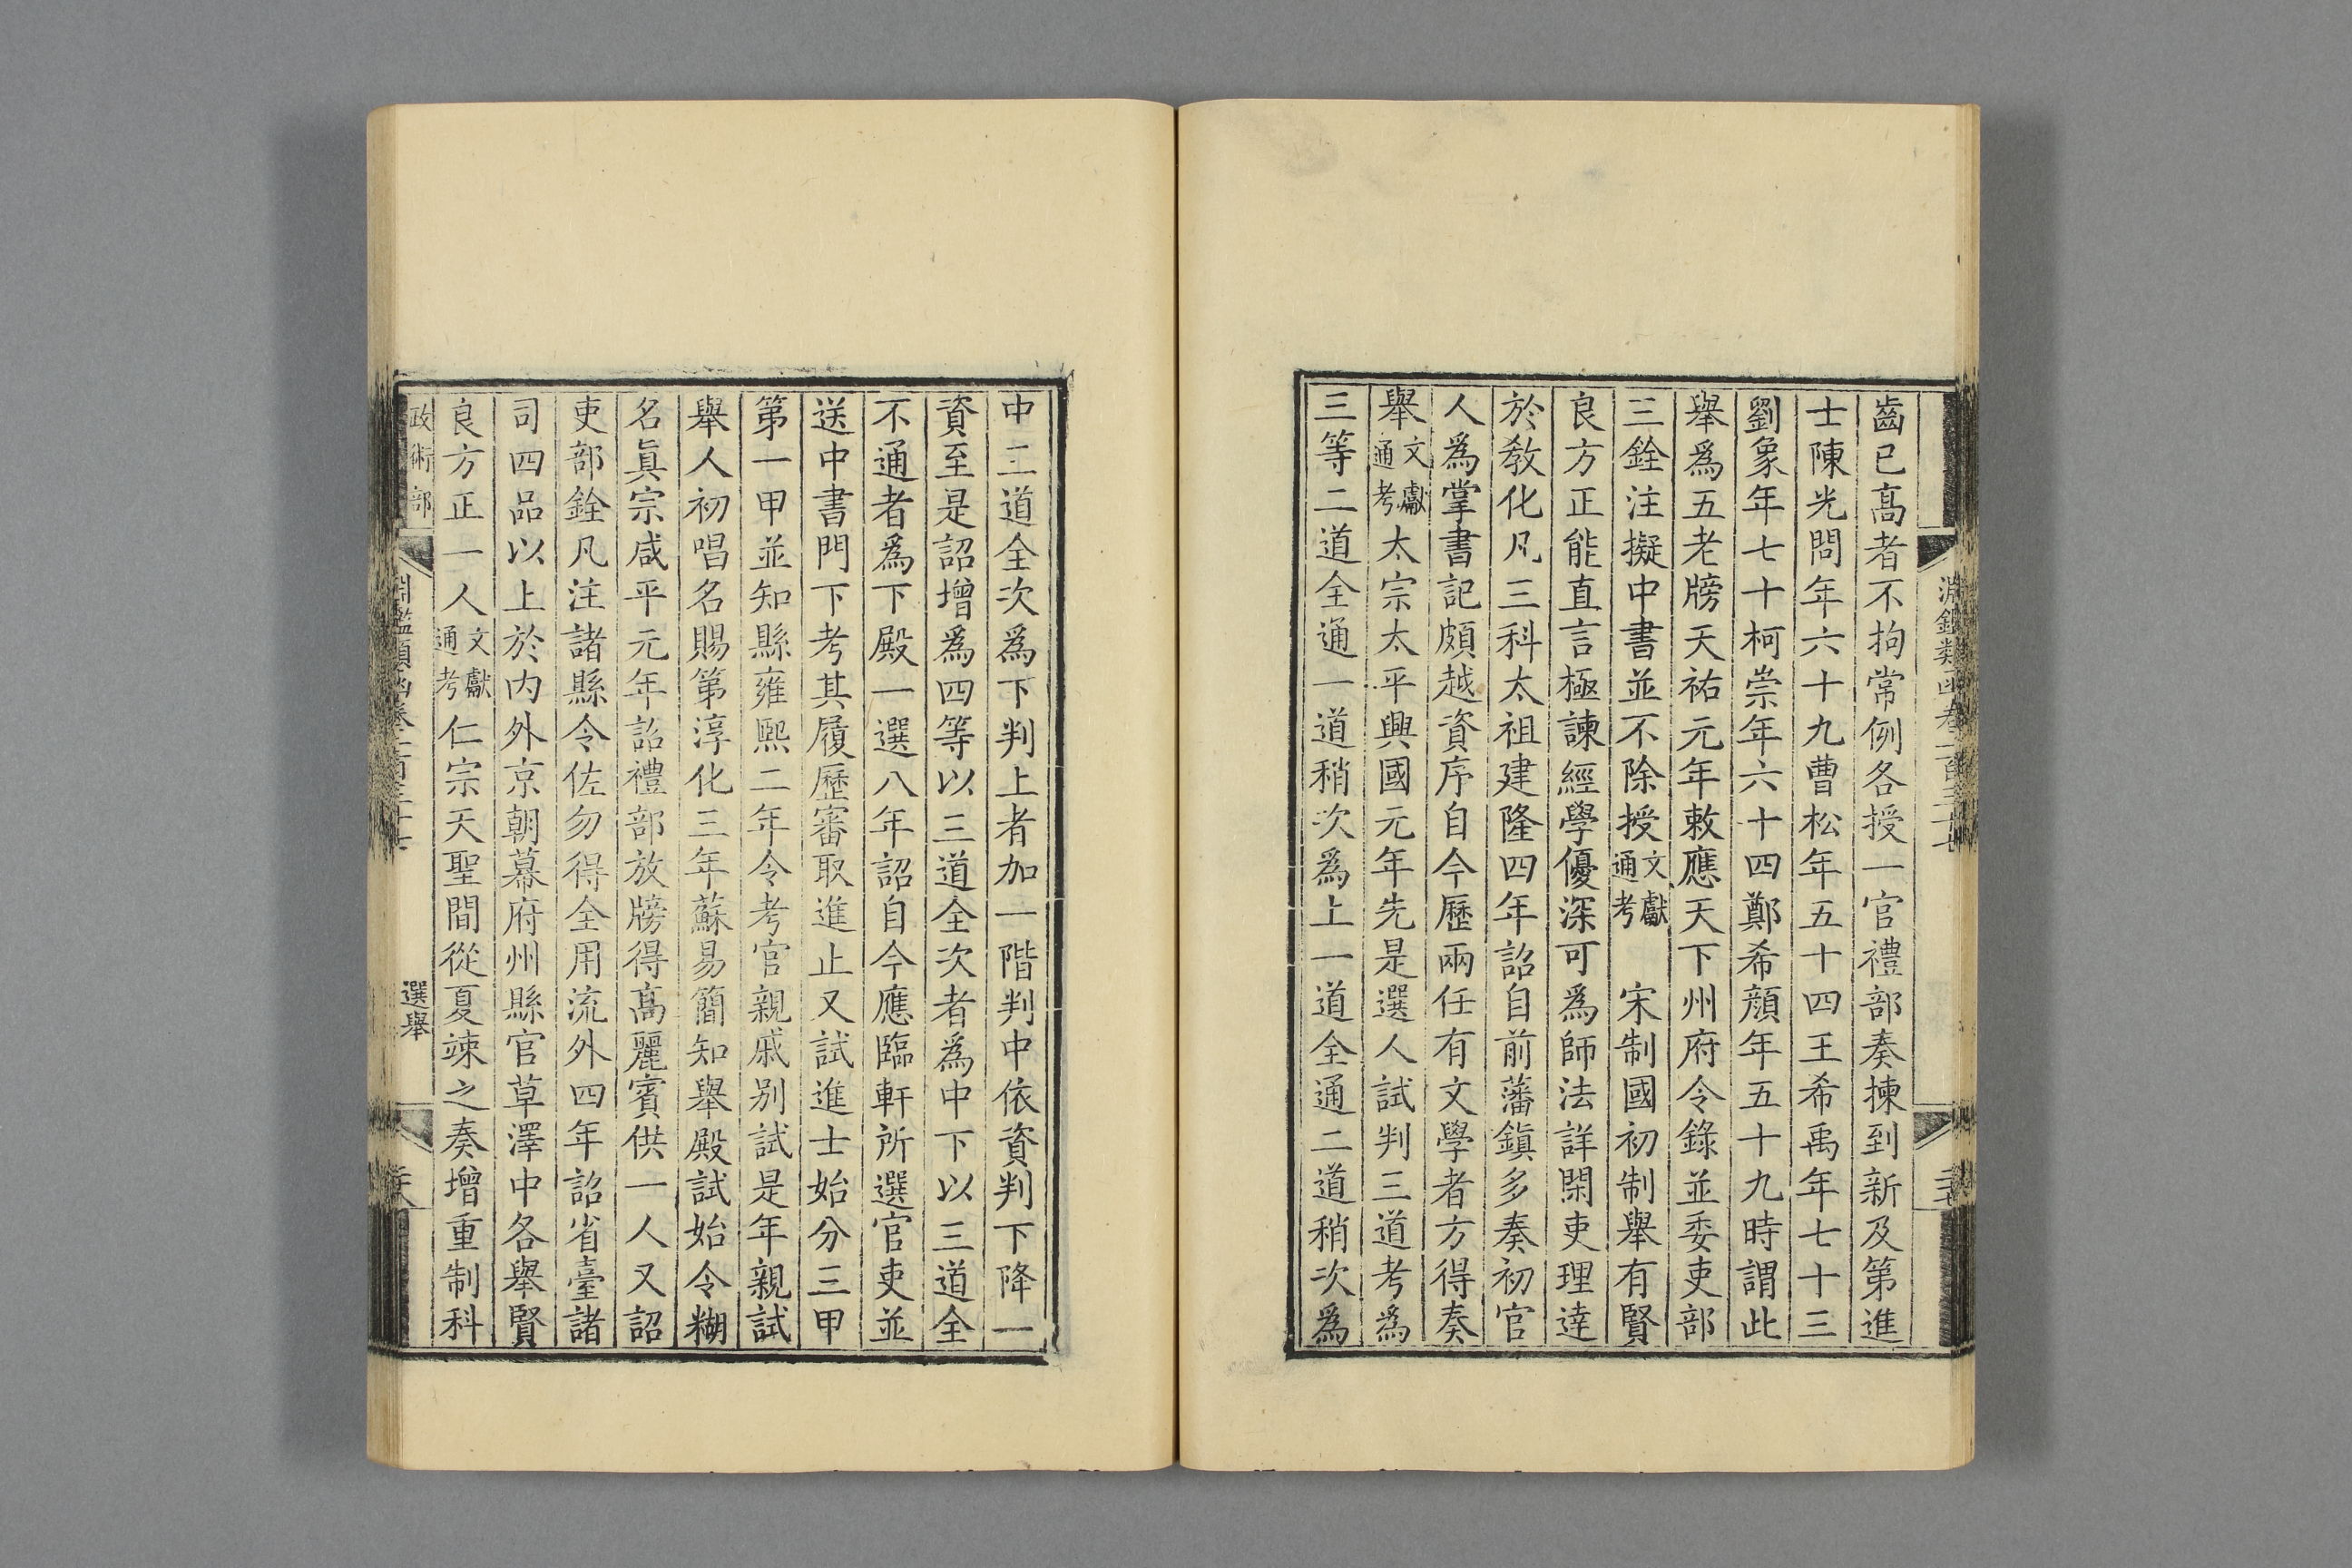 齒已高者不拘常例各授一官禮部奏揀到新及第進
士陳光問年六十九曹松年五十四王希禹年七十三
劉象年七十柯崇年六十四鄭希顔年五十九時謂此
舉爲五老牓天祐元年敕應天下州府令錄並委吏部
三銓注擬中書並不除授文獻通考　宋制國初制舉有賢
良方正能直言極諫經學優深可爲師法詳閑吏理達
於敎化凡三科太祖建隆四年詔自前藩鎭多奏初官
人爲掌書記頗越資序自今歷兩任有文學者方得奏
舉文獻通考太宗太平興國元年先是選人試判三道考爲
三等二道全通一道稍次爲上一道全通二道稍次爲
中二道全次爲下判上者加一階判中依資判下降一
資至是詔增爲四等以三道全次者爲中下以三道全
不通者爲下殿一選八年詔自今應臨軒所選官吏並
送中書門下考其履歷審取進止又試進士始分三甲
第一甲並知縣雍熙二年令考官親戚别試是年親試
舉人初唱名賜第淳化三年蘇易簡知舉殿試始令糊
名眞宗咸平元年詔禮部放牓得高麗賓供一人又詔
吏部銓凡注諸縣令佐勿得全用流外四年詔省臺諸
司四品以上於内外京朝幕府州縣官草澤中各舉賢
良方正一人文獻通考仁宗天聖間從夏竦之奏增重制科
政術部
選舉